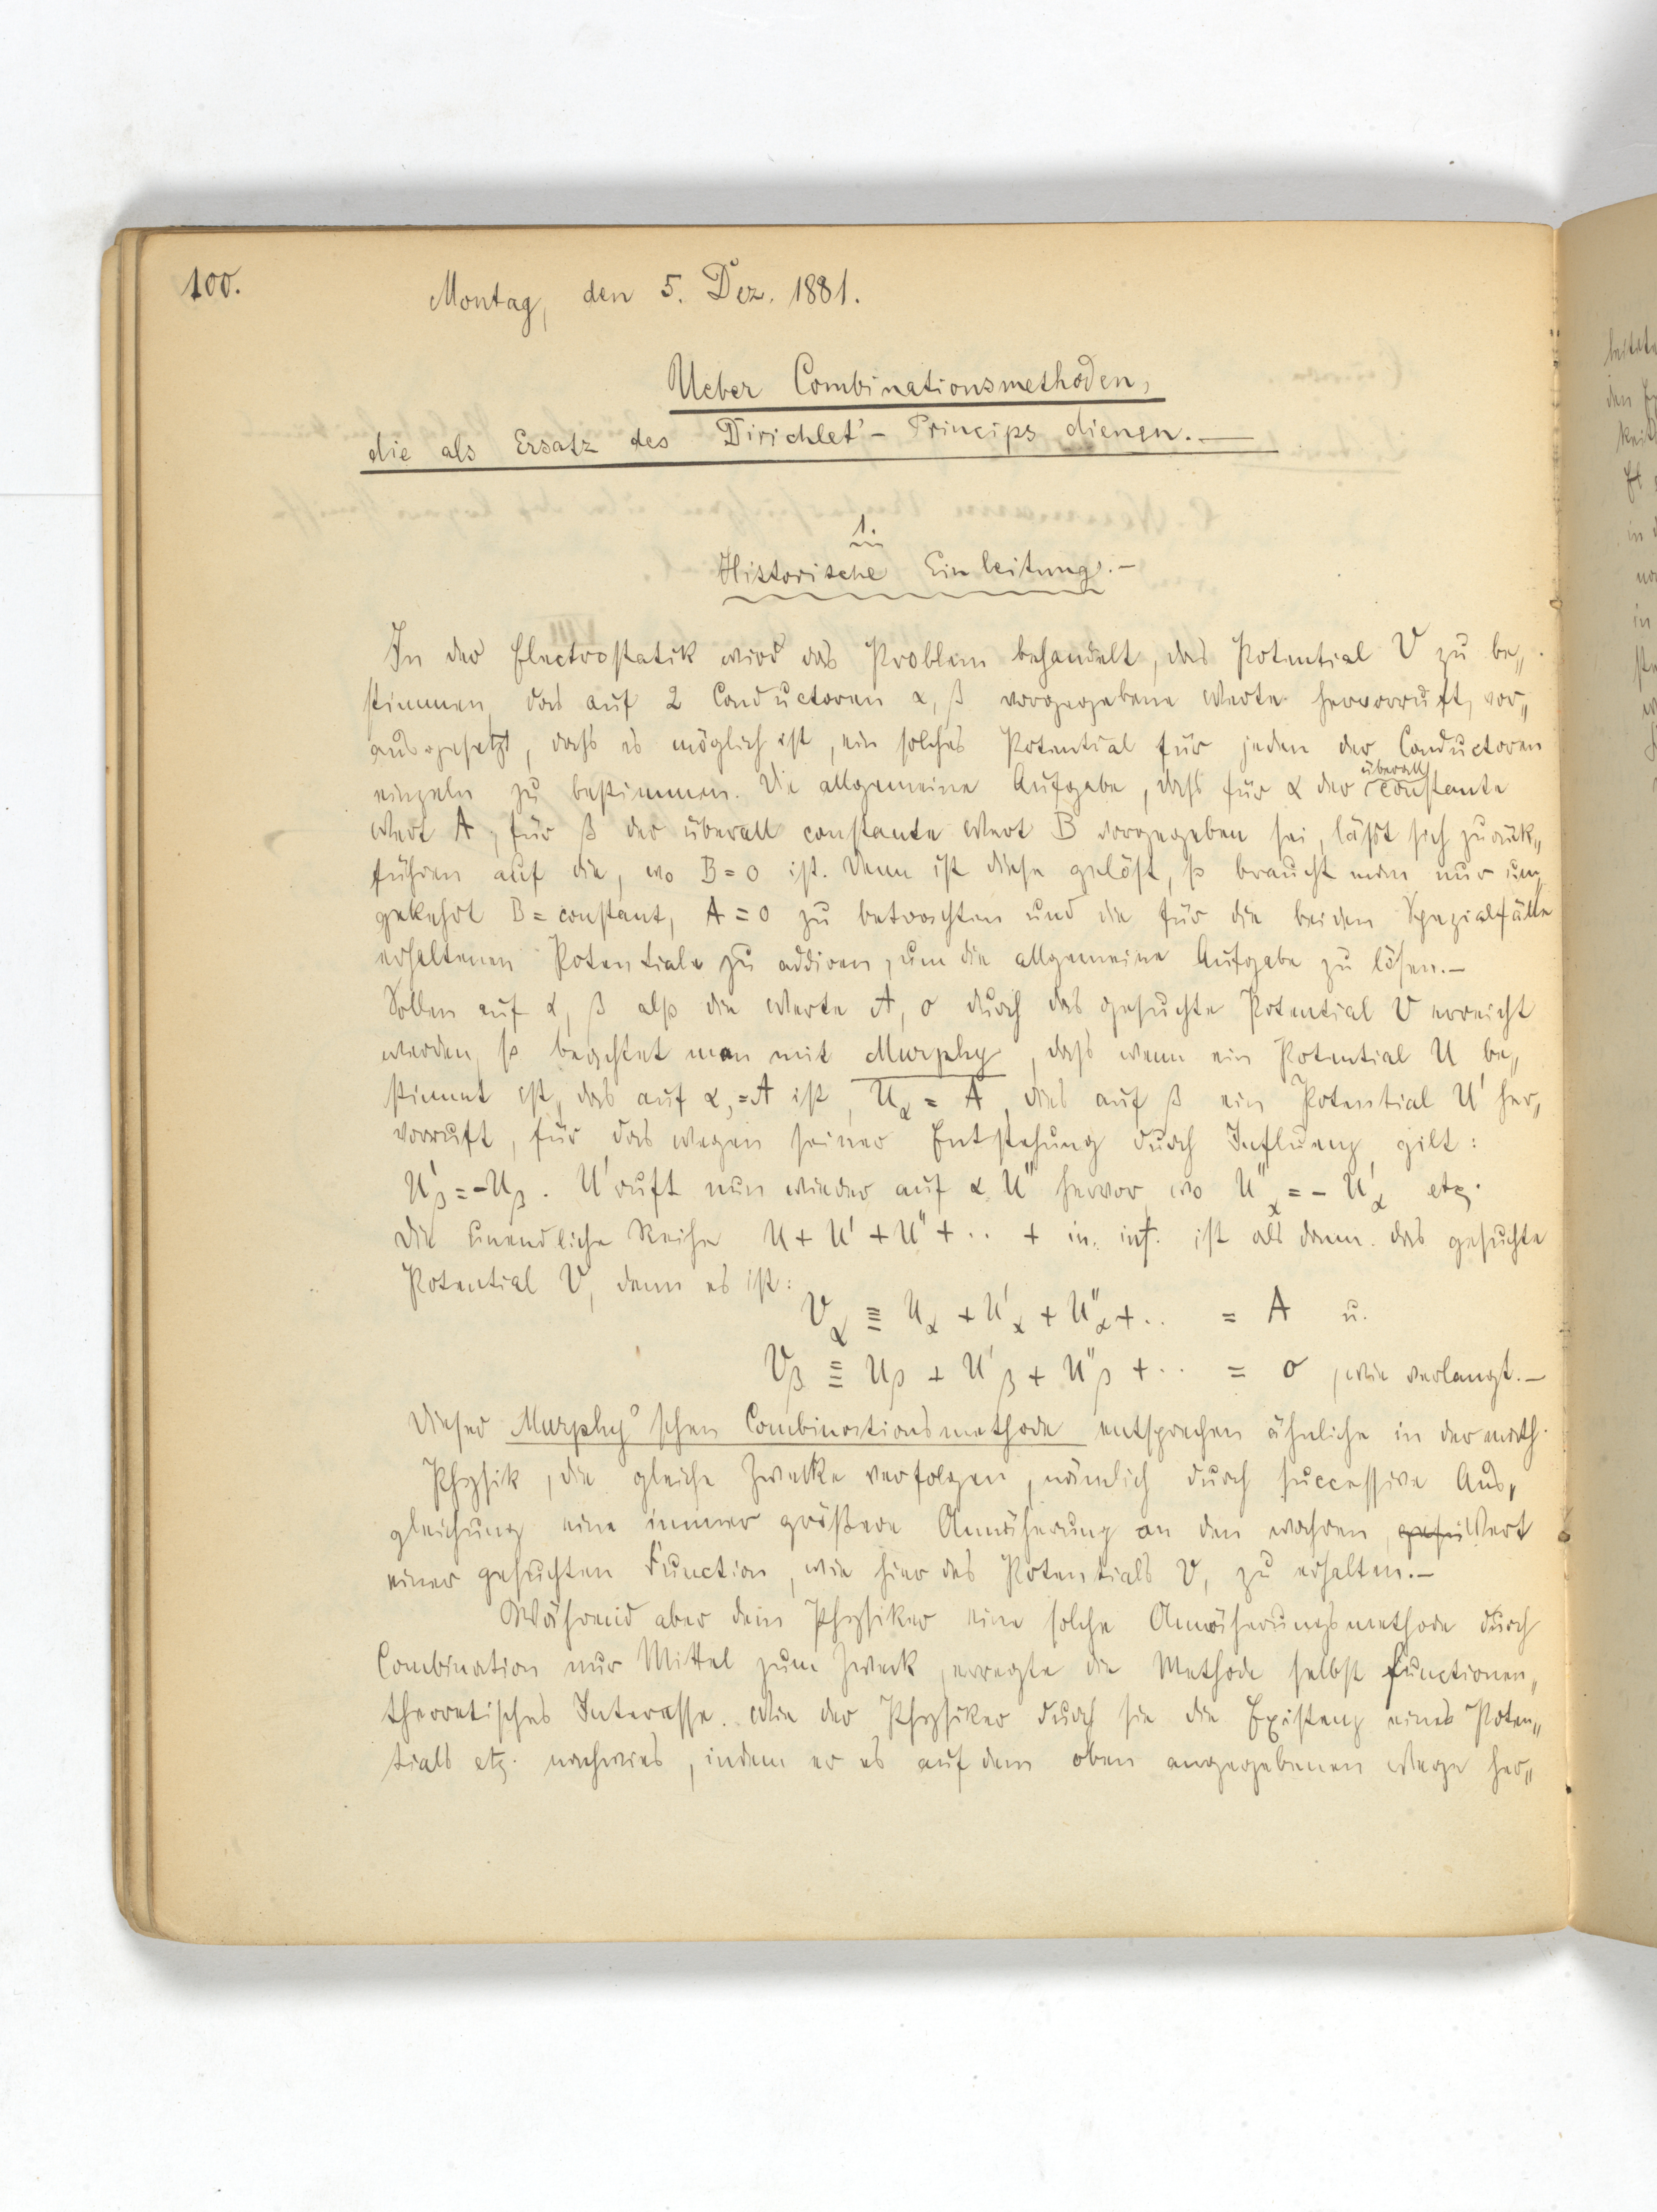 100.
Montag, den 5. Dez. 1881.
Ueber Combinationsmethoden,
die als Ersatz des Dirichlet'- Princips dienen.—
1.
Historische Einleitung.—
In der Electrostatik wird das Problem behandelt, das Potential V zu be„
stimmen, das auf 2 Conductoren α, β vorgegebene Werte hervorruft, vor„
ausgesetzt, dass es möglich ist, ein solches Potential für jeden der Conductoren
einzeln zu bestimmen. Die allgemeine Aufgabe, dass für α der überall constante
Wert A, für β der überall constante Wert B vorgegeben sei, lässt sich zurük„
führen auf die, wo B = 0 ist. Denn ist diese gelöst, so braucht man nur um„
gekehrt B = constant, A = 0 zu betrachten und die für die beiden Spezialfälle
erhaltenen Potentiale zu addiren, um die allgemeine Aufgabe zu lösen.—
Sollen auf α, β also die Werte A, 0 durch das gesuchte Potential V erreicht
werden, so beachtet man mit Murphy, dass wenn ein Potential U be„
stimmt ist, das auf α, = A ist, U_α = A, dies auf β ein Potential U' her„
vorruft, für das wegen seiner Entstehung durch Influenz gilt:
U'_β = -U_β. U' ruft nun wieder auf α U'' hervor, wo U''_α = - U'_α etz.
Die unendliche Reihe U + U' + U'' + .. + in. inf. ist als dann das gesuchte
Potential V, denn es ist:
V_α ≡ U_α + U'_α + U''_α + .. = A u.
V_β ≡ U_β + U'_β + U''_β + .. = 0, wie verlangt.—
Dieser Murphy'schen Combinationsmethode entsprechen ähnliche in der math.
Physik, die gleiche Zwecke verfolgen, nämlich durch successive Aus„
gleichung eine immer grössere Annäherung an den wahren Wert
einer gesuchten Function, wie hier des Potentials V, zu erhalten.—
Während aber dem Physiker eine solche Annäherungsmethode durch
Combination nur Mittel zum Zweck, erregte die Methode selbst functionen„
theoretisches Interesse. Wie der Physiker durch sie die Existenz eines Poten„
tials etz. nachwies, indem er es auf dem oben angegebenen Wege her„